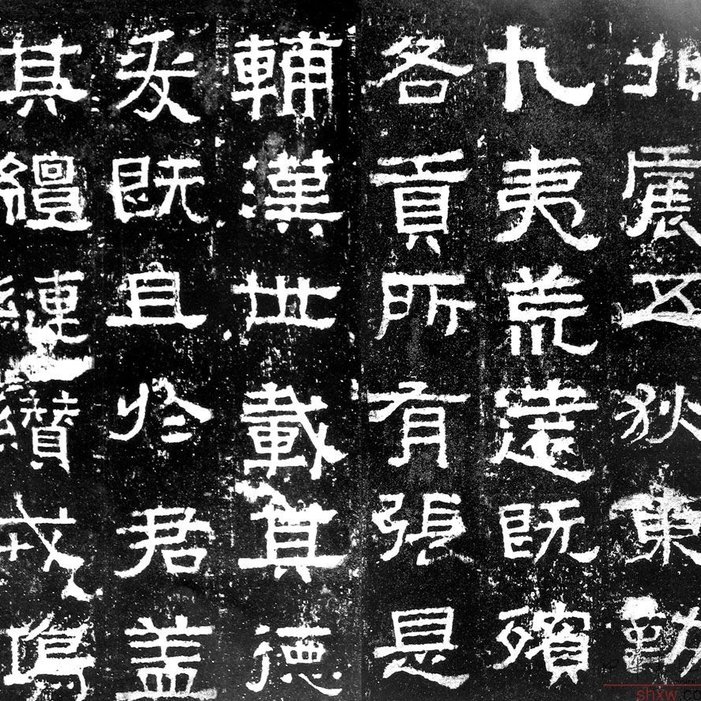 北震五狄東勤
九夷荒遠既殯
各貢所有張是
輔漢世載其德
爰既且於君盖
其繵縺纘戎鴻
shxw.co